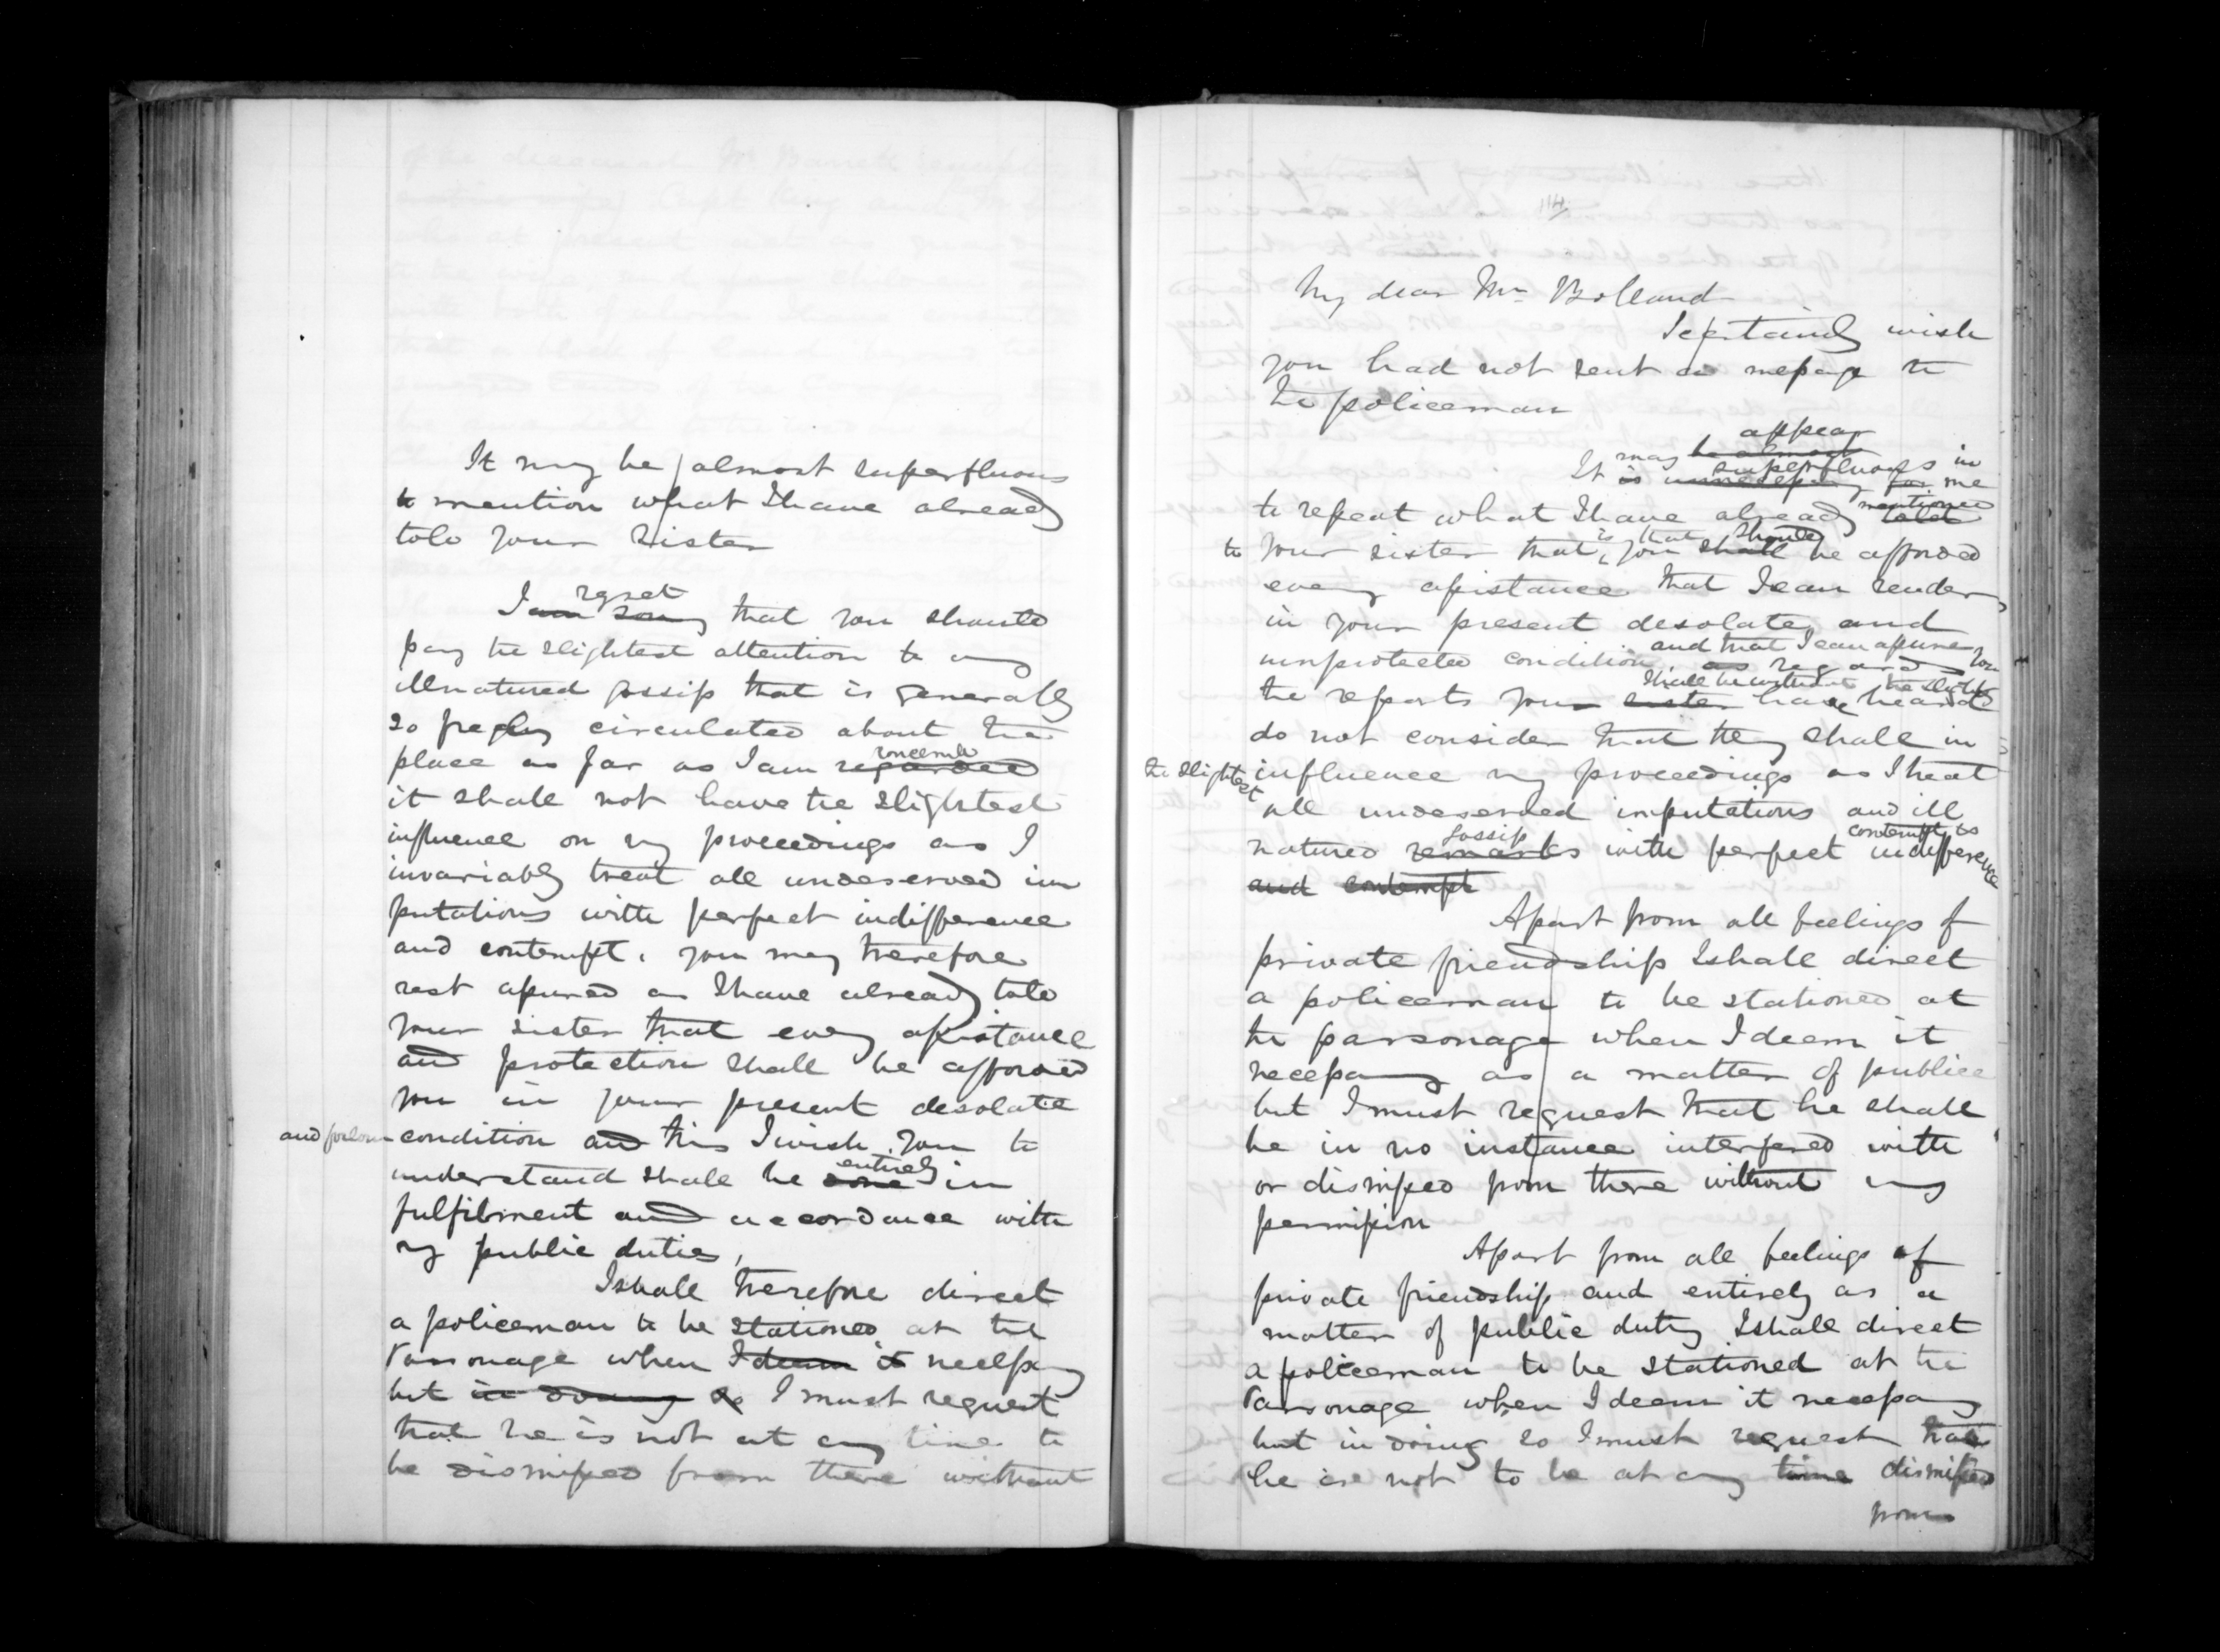 It may be almost superfluous
to mention what I have already
told your sister
regret
I am sorry that you should
pay the slightest attention to any
illnatured gossip that is generally
so freely circulated about the
concerned
place as far as I am regarded
it shall not have the slightest
influence on my proceedings as I
invariably treat all undeserved im
putations with perfect indifference
and contempt. you may therefore
rest assured as I have already told
your sister that every assistance
and protection shall be afforded
you in your present desolate
and forlorn condition and this I wish you to
entirely
understand shall be done in
fulfilment and accordance with
my public duties,
I shall therefore direct
a policeman to be stationed at the
Parsonage when I deem it necessary
but in doing so I must request
that he is not at any time to
be dismissed from there without
114
My dear Mrs Bolland
I certainly wish
you had not sent a message to
the policeman
appear
may be almost
superfluous in
It is unnecessary for me
mentioned
to repeat what I have already told
is that should
to your sister that you shall be afforded
every assistance that I can render
in your present desolate and
and that I can assure you
unprotected condition. as regards
shall be without the slightest
the reports your sister have heard
do not consider that they shall in
the slightest influence my proceedings as I treat
all undeserved imputations and ill
gossip contempt &
natured remarks with perfect indifference
and contempt
Apart from all feelings of
private friendship I shall direct
a policeman to be stationed at
the parsonage when I deem it
necessary as a matter of public
but I must request that he shall
be in no instance interfered with
or dismissed from there without my
permission
Apart from all feelings of
private friendship and entirely as a
matter of public duty I shall direct
a policeman to be stationed at the
Parsonage when I deem it necessary
but in doing so I must request that
he is not to be at any time dismissed
from